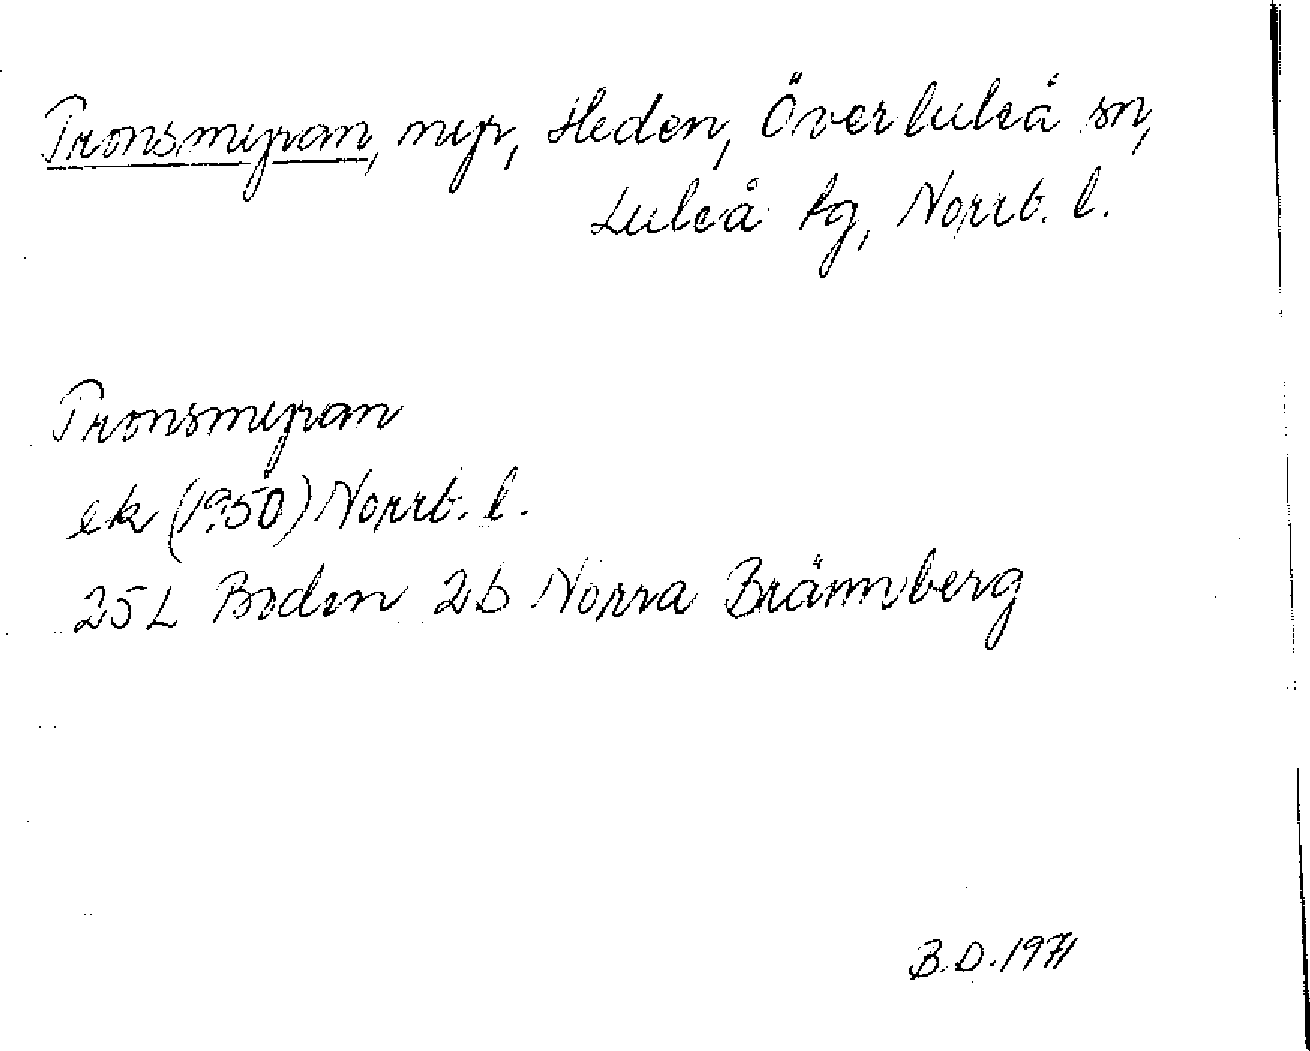 Tronsmyran, myr, Heden, Överluleå sn,
Luleå tg, Norrb. l.
Tronsmyran
ek (1950) Norrb. l.
25L Boden 2b Norra Brännberg
B.D. 1971